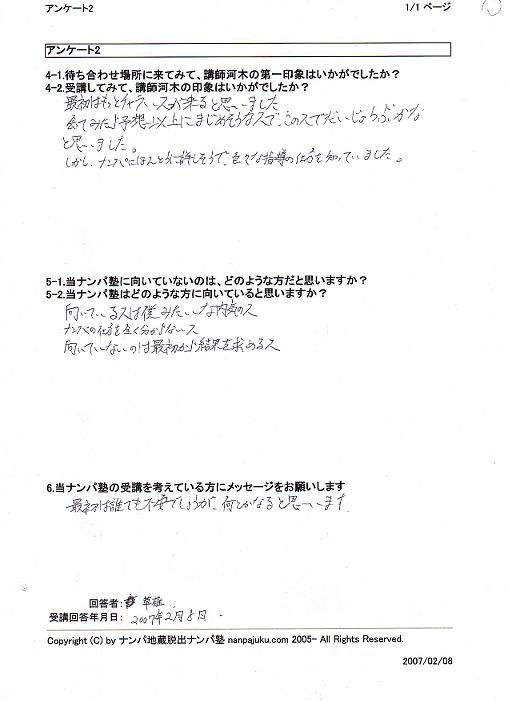 アンケート2
1/1 ページ
アンケート2
4-1.待ち合わせ場所に来てみて、講師河木の第一印象はいかがでしたか？
4-2.受講してみて、講師河木の印象はいかがでしたか？
最初はもっとチャラい人が来ると思いました
会てみたら予想以上にまじめそうな人で、この人でだいじょうぶかな
と思いました。
しかし、ナンパにほんとうに詳しそうで、色々な指導の仕方を知っていました。
5-1.当ナンパ塾に向いていないのは、どのような方だと思いますか？
5-2.当ナンパ塾はどのような方に向いていると思いますか？
向いている人は僕みたいな内気の人
ナンパの仕方を全く分からない人
向いていないのは最初から結果を求める人
6.当ナンパ塾の受講を考えている方にメッセージをお願いします
最初は誰でも不安でしょうが、何とかなると思います
回答者:
受講回答年月日: 2007年2月8日
Copyright (C) by ナンパ地蔵脱出ナンパ塾 nanpajuku.com 2005- All Rights Reserved.
2007/02/08